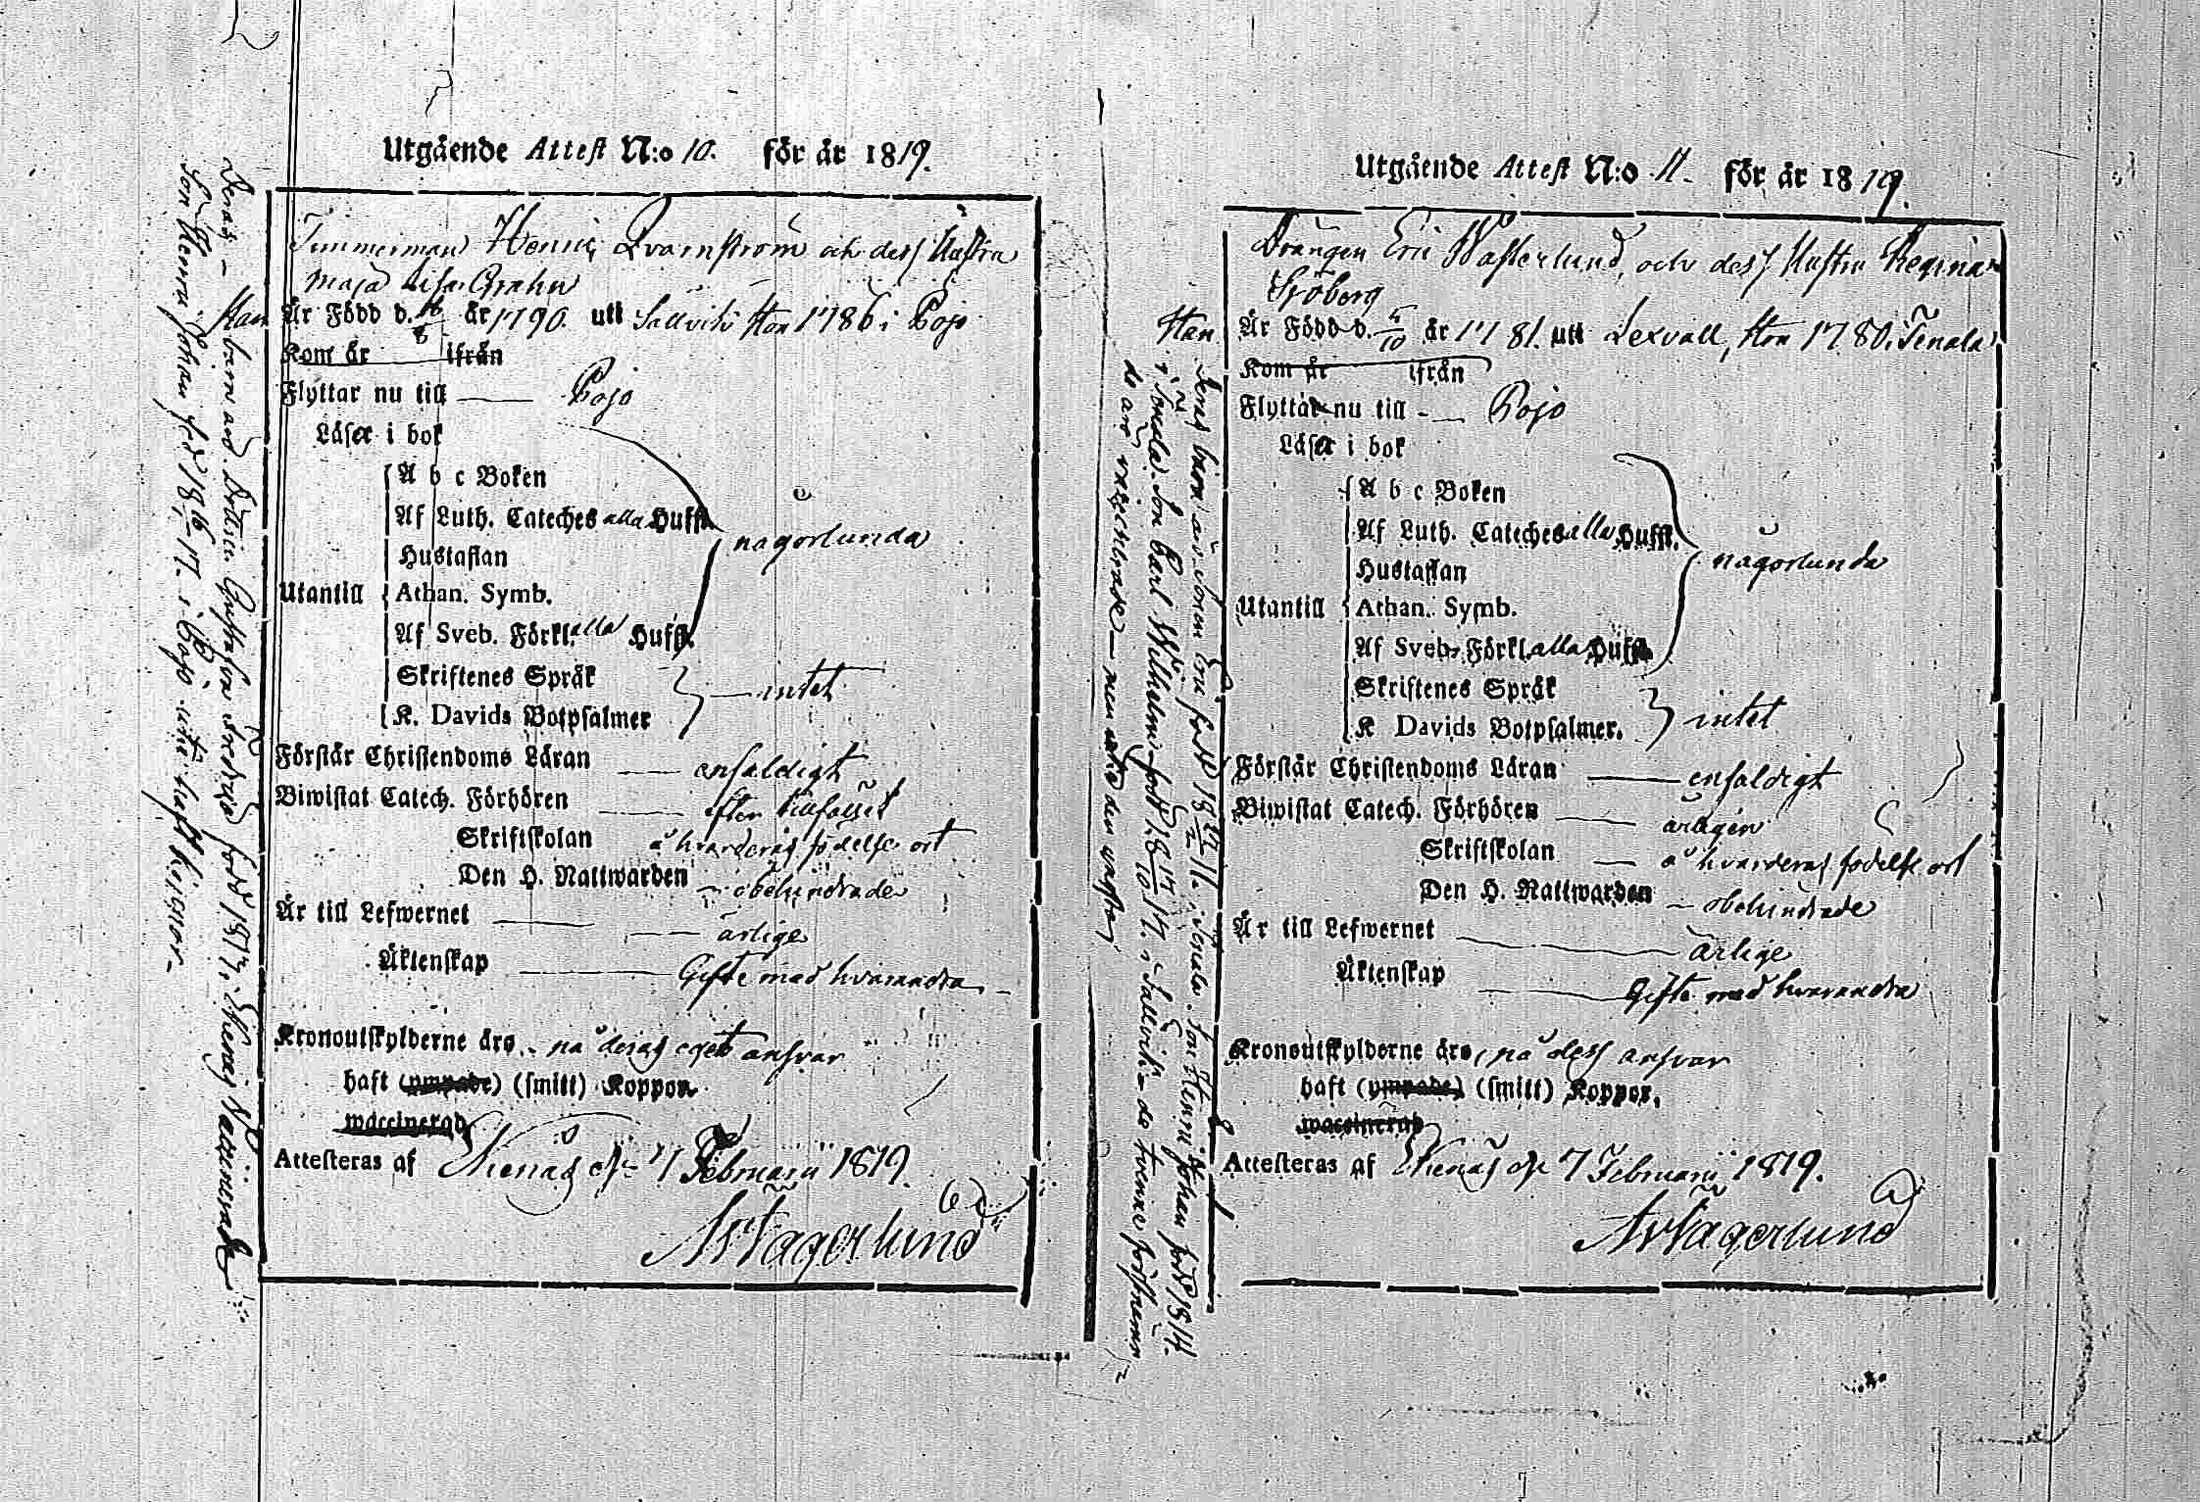 Utgående Attest N:o 10. för år 1819.
Timmerman Henric Qvarnström och dess Hustru
Maja Lisa Grahn
Han Är Född d. 16/8 år 1790. uti Sällvik Hon 1786 i Pojo
Kom år ifrån
Flyttar nu till Pojo
Läser i bok
A b c Boken
Af Luth. Cateches alla Hufst.
Hustaflan
någorlunda
Utantill Athan. Symb.
Af Sveb. Förkl. alla Hufst.
Skriftenes Språk
intet
K. Davids Botpsalmer
Förstår Christendoms Läran enfaldigt
Biwistat Catech. Förhören efter tillfället
Skriftskolan å hvarderas födelse ort
Den H. Nattwarden obehindrade
Är till Lefwernet ärlige
Äktenskap Gifte med hvarandra
Kronoutskylderne äro på deras eget answar
haft (ympade) (smitt) Koppor.
waccinerad
Attesteras af Ekenäs d. 7 Februarii 1819.
A W Fagerlund
Deras barn äro Dottren Gustafva Fredrica född 1817. Ekenäs Vaccinerad
Son Henric Johan född 18 17. i Pojo inte haft kojgor
Utgående Attest N:o 11. för år 1819.
Drängen Eric Wästerlund, och dess Hustru Regina
Sjöberg
Han Är Född d. 5/10 år 1781. uti Lexvall, Hon 1780 i Tenala
Kom år ifrån
Flyttar nu till Pojo
Läser i bok
A b c Boken
Af Luth. Cateches alla Hufst.
Hustaflan
någorlunda
Utantill Athan. Symb.
Af Sveb. Förkl. alla Hufst.
Skriftenes Språk
intet
K Davids Botpsalmer.
Förstår Christendoms Läran enfaldigt
Biwistat Catech. Förhören årligen
Skriftskolan å hvarderas födelse ort
Den H. Nattwarden obehindrade
Är till Lefwernet ärlige
Äktenskap Gifte med hvarandra
Kronoutskylderne äro, på dess answar
haft (ympade) (smitt) Koppor.
waccinerad
Attesteras af Ekenäs d. 7 Februarii 1819.
A W Fagerlund
Deras barn äro Sonen Eric född 18 i Tenala. Son Henric Johan född 1814.
i Tenala. Son Carl Wilhelm född 18 17/10 17. i Sällvik de tvenne förstnemn
de äro vaccinerade men icke den yngsta